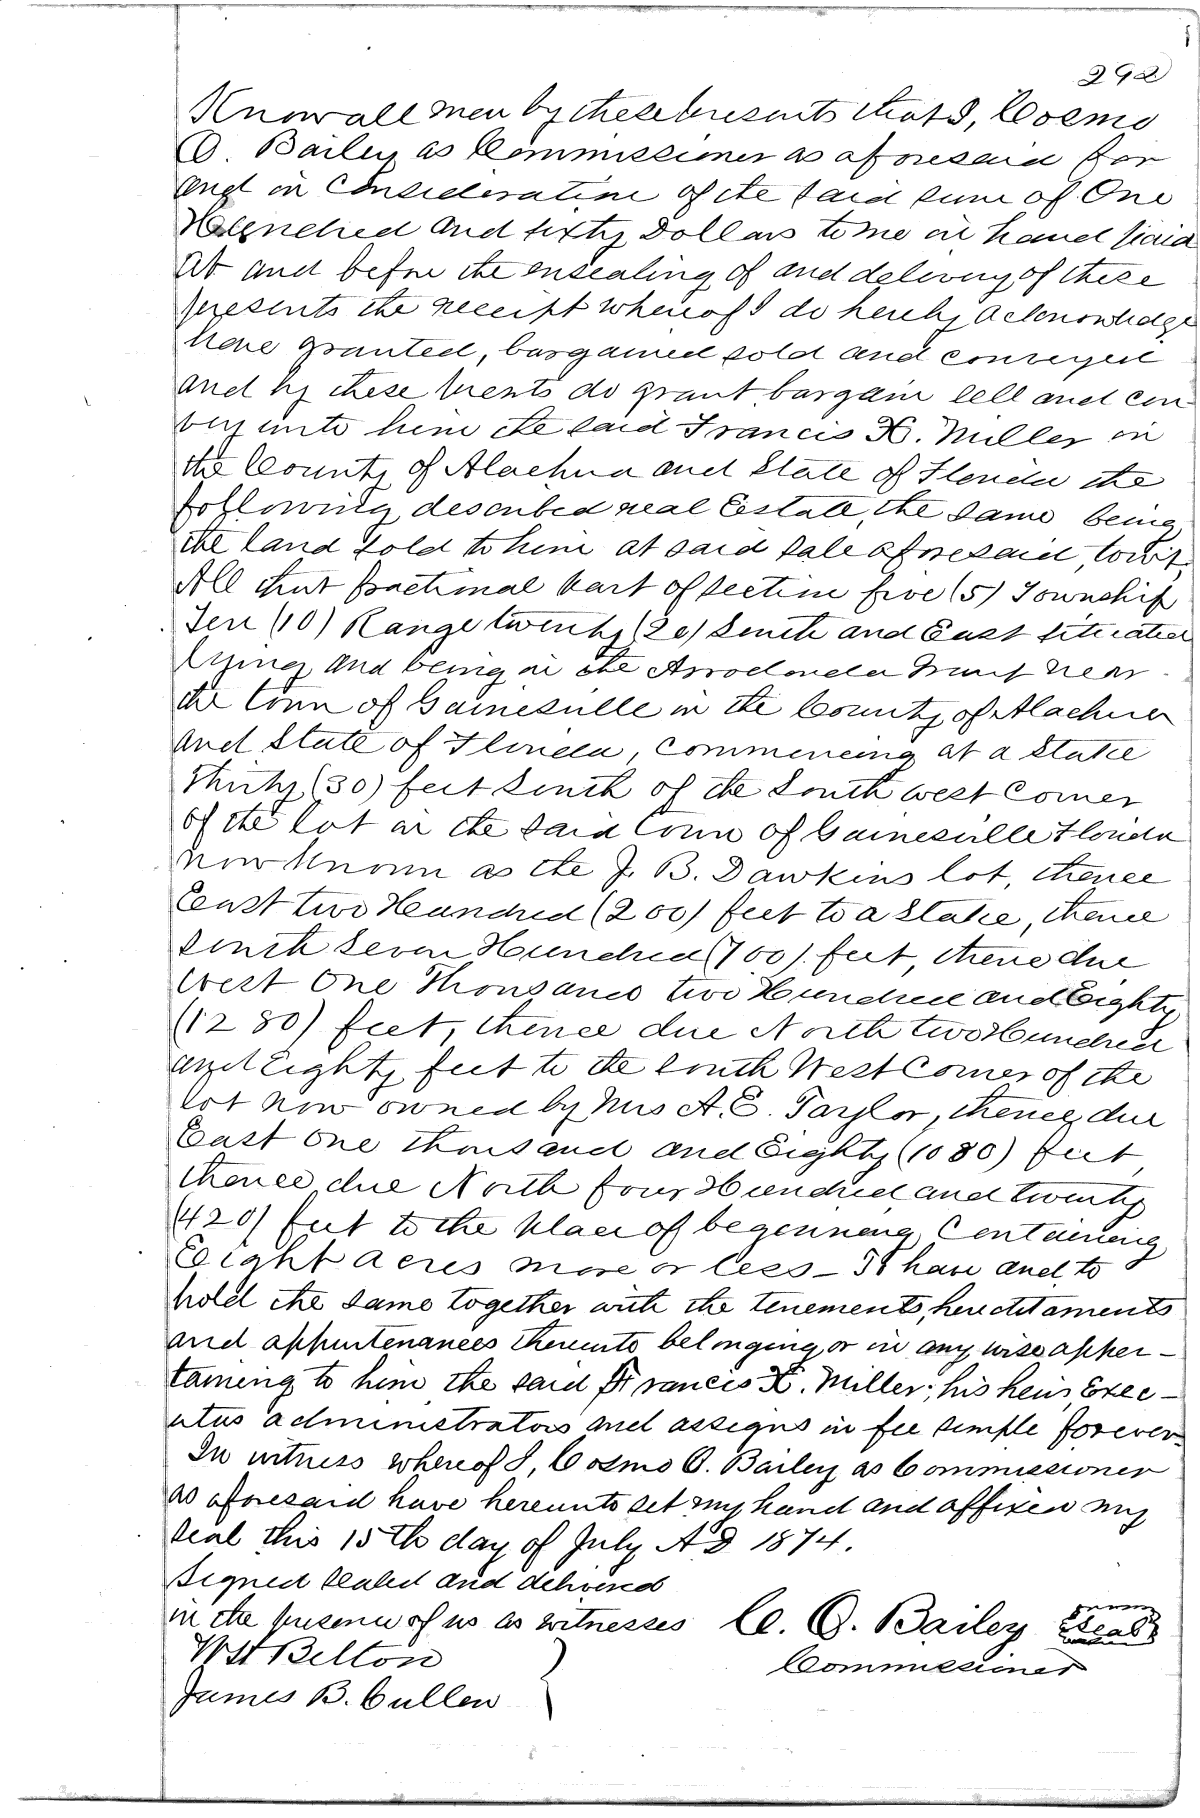 292
Know all men by these presents that I, Cosmo
O. Bailey as Commissioner as aforesaid for
and in consideration of the said sum of One
Hundred and sixty Dollars to me in hand paid
at and before the ensealing of and delivery of these
presents the receipt whereof I do hereby acknowledge
have granted, bargained sold and conveyed
and by these presents do grant bargain sell and con
vey unto him the said Francis X. Miller in
the County of Alachua and State of Florida the
following described real Estate, the same being
the land sold to him at said sale aforesaid, towit,
All that fractional part of section five (5) Township
Ten (10) Range twenty (20) South and East situated
lying and being in the Arredondo Grant near
the town of Gainesville in the County of Alachua
and State of Florida, commencing at a Stake
thirty (30) feet South of the South west Corner
of the lot in the said town of Gainesville Florida
now known as the J. B. Dawkins lot, thence
East two Hundred (200) feet to a Stake, thence
South Seven Hundred (700) feet, thence due
West One Thousand two Hundred and Eighty
(1280) feet, thence due North two Hundred
and Eighty feet to the South West Corner of the
lot now owned by Mrs A. E. Taylor, thence due
East one thousand and Eighty (1080) feet,
thence due North four Hundred and twenty
(420) feet to the place of beginning Containing
Eight acres more or less – To have and to
hold the same together with the tenements, hereditaments
and appurtenances thereunto belonging or in any wise apper–
taining to him the said Francis X. Miller; his heirs, Exec–
utors administrators and assigns in fee simple forever–
In witness whereof I, Cosmo O. Bailey as Commissioner
as aforesaid have hereunto set my hand and affixed my
seal this 15th day of July AD 1874.
Signed sealed and delivered
in the presence of us as witnesses C. O. Bailey Seal
W H Belton Commissioner
James B. Cullen